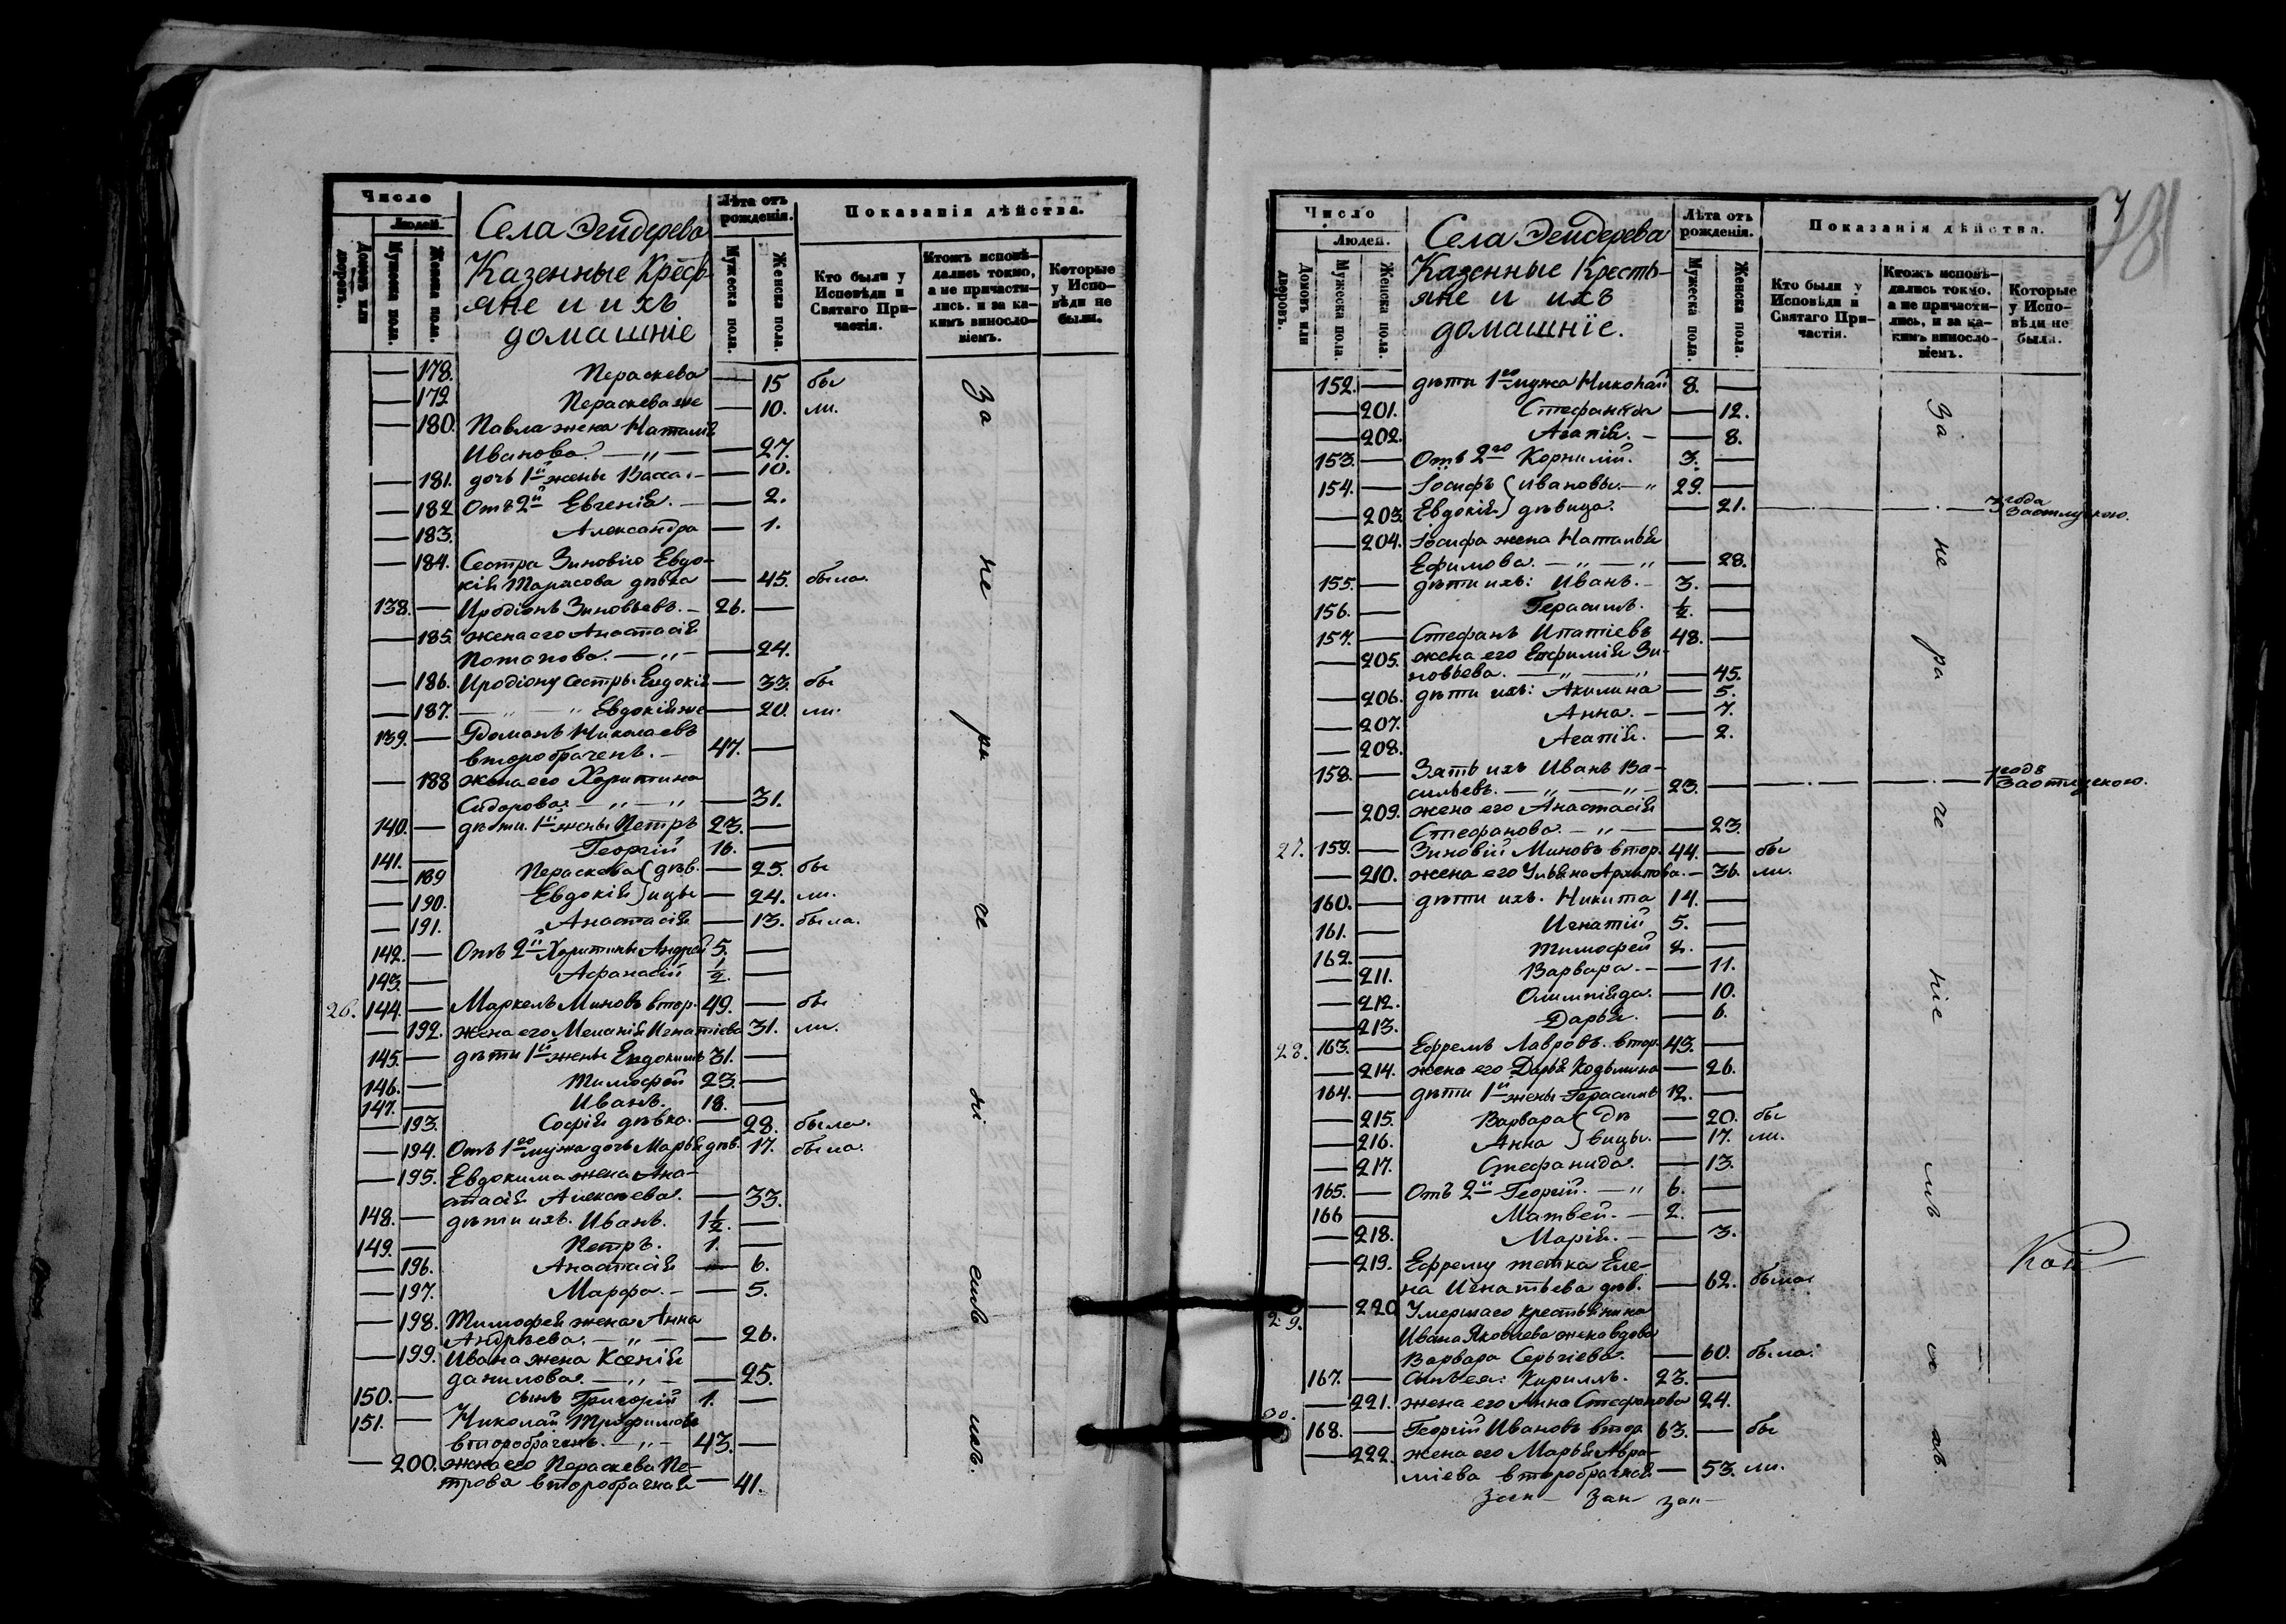 Число
Людей.
Домовъ или дворовъ.
Мужеска пола.
Женска пола.
Села Эейдерева
Казенные Кресть-
яне и ихъ
домашніе
Лѣта отъ рожденія.
Мужеска пола.
Женска пола.
Показанія дѣйства.
Кто были у Исповѣди и Святаго При-частія.
Ктожъ исповѣ-дались токмо, а не причасти-лись. и за ка-кимъ винosло-віемъ.
Которые у Испо-вѣди не были.
— 178. Пераскева — 15 бы
— 179 Пераскева же — 10. ли.
— 180. Павла жена Наталія
Иванова. — „ — — 27.
— 181. дочь 1й жены Васса. — — 10.
— 182 Отъ 2й Евгенія. — — 2.
— 183. Александра — 1.
— 184. Сестра Зиновію Евдо-
кія Тарасова дѣвка — 45. была.
138. — Иродіонъ Зиновьевъ. — 26. —
— 185. жена его Анастасія
Потапова. — „ — — 24.
— 186. Иродіону сестры Евдокія — 33. бы
— 187. — „ „ Евдокія же — 20. ли.
139. — Романъ Николаевъ
второбраченъ. — 47. —
— 188 жена его Харитина
Сидорова. — „ — „ — 31.
140. — дѣти 1й жены Петръ 23. —
141. — Георгій 16. —
— 189 Пераскева ( дѣв- — 25. бы
— 190. Евдокія ) ицы — 24. ли.
— 191. Анастасія — 13. была.
142. — Отъ 2й Харитины Андрей 5. —
143. — Афанасій ½. —
26. 144. — Маркелъ Миновъ втор. 49. — бы
— 192. жена его Меланія Игнатіева 31. ли.
145. — дѣти 1й жены Евдокимъ 31. —
146. — Тимофей 23. —
147. — Иванъ. 18. —
— 193. Софія дѣвка. — 28. была.
— 194. Отъ 1го мужа дочь Марья дѣв. 17. была.
— 195. Евдокима жена Ана-
стасія Алексѣева. — 33.
148. — дѣти ихъ. Иванъ. 1½. —
149. — Петръ. 1. —
— 196. Анастасія — 6.
— 197. Марфа. — — 5.
— 198. Тимофея жена Анна
Андрѣева. — „ — — 26.
— 199. Ивана жена Ксенія
Данилова. — „ — — 25.
150. — сынъ Григорій 1. —
151. — Николай Трофимовъ
второбраченъ. — „ — 43. —
— 200. жена его Пераскева Пе-
трова второбрачная — 41.
За не ра че ні емъ ихъ.
78
Число
Людей.
Домовъ или дворовъ.
Мужеска пола.
Женска пола.
Села Эейдерева
Казенные Кресть-
яне и ихъ
домашніе.
Лѣта отъ рожденія.
Мужеска пола.
Женска пола.
Показанія дѣйства.
Кто были у Исповѣди и Святаго При-частія.
Ктожъ исповѣ-дались токмо. а не причасти-лись, и за ка-кимъ винosло-віемъ.
Которые у Испо-вѣди не были.
152. — дѣти 1го мужа Николай 8. —
— 201. Стефанида — 12.
— 202. Агапія. — — 8.
153. — Отъ 2го Корнилій. 3. —
154. — Іосифъ ( Ивановы. — „ 29. —
— 203. Евдокія ) дѣвица. — 21. — 3 года За отлучкою.
— 204. Іосифа жена Наталья
Ефимова. — „ — „ — 28.
155. — дѣти ихъ: Иванъ. — 3. —
156. — Герасимъ. ½. —
157. — Стефанъ Ипатіевъ 48. —
— 205. жена его Евфимія Зи-
новьева. — „ — „ — 45.
— 206. дѣти ихъ: Акилина — 5.
— 207. Анна. — — 7.
— 208. Агапія. — 2.
158. — Зять ихъ Иванъ Ва-
сильевъ. — „ — „ — 23. — 1 годъ За отлучкою.
— 209. жена его Анастасія
Стефанова. — „ — — 23.
27. 159. — Зиновій Миновъ втор. 44. — бы
— 210. жена его Ульяна Архипова. — 36. ли.
160. — дѣти ихъ. Никита 14. —
161. — Игнатій 5. —
162. — Тимофей 2. —
— 211. Варвара. — — 11.
— 212. Олимпіяда. — 10.
— 213. Дарья. — 6.
28. 163. — Ефремъ Лавровъ. втор. 43. —
— 214. жена его Дарья Козьмина — 26.
164. — дѣти 1й жены Герасимъ 12. —
— 215. Варвара ( дѣ — 20. бы
— 216. Анна ) вицы. — 17. ли.
— 217. Стефанида. — 13.
165. — Отъ 2й Георгій. — „ 6. —
166 — Матвей. — 2. —
— 218. Марія. — — 3.
— 219. Ефрему тетка Еле-
на Игнатьева дѣв. — 62. была
29. — 220 Умершаго крестьянина
Ивана Яковлева жена вдова
Варвара Сергіева. — 60. была.
167. — сынъ ея: Кириллъ. 23. —
— 221. жена его Анна Стефанова 24.
30. 168. — Георгій Ивановъ втор. 63. — бы
— 222. жена его Марья Авра-
міева второбрачная — 53. ли.
За не ра че ніе мъ